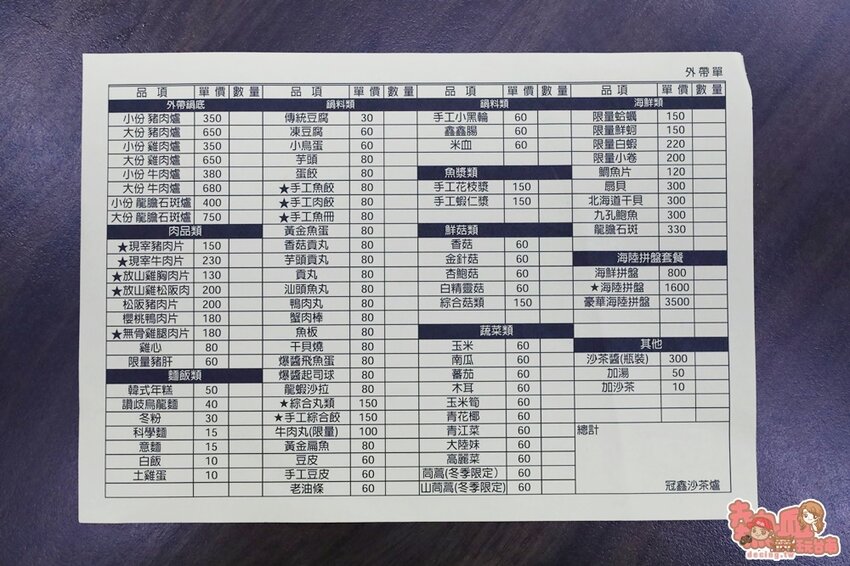 外帶單
品項 單價 數量
外帶鍋底
小份 豬肉爐 350
大份 豬肉爐 650
小份 雞肉爐 350
大份 雞肉爐 650
小份 牛肉爐 380
大份 牛肉爐 680
小份 龍膽石斑爐 400
大份 龍膽石斑爐 750
肉品類
★現宰豬肉片 150
★現宰牛肉片 230
★放山雞胸肉片 130
★放山雞松阪肉 200
松阪豬肉片 200
櫻桃鴨肉片 180
★無骨雞腿肉片 180
雞心 80
限量豬肝 60
麵飯類
韓式年糕 50
讚歧烏龍麵 40
冬粉 30
科學麵 15
意麵 15
白飯 10
土雞蛋 10
品項 單價 數量
鍋料類
傳統豆腐 30
凍豆腐 60
小鳥蛋 60
芋頭 80
蛋餃 80
★手工魚餃 80
★手工肉餃 80
★手工魚冊 80
黃金魚蛋 80
香菇貢丸 80
芋頭貢丸 80
貢丸 80
汕頭魚丸 80
鴨肉丸 80
蟹肉棒 80
魚板 80
干貝燒 80
爆醬飛魚蛋 80
爆醬起司球 80
龍蝦沙拉 80
★綜合丸類 150
★手工綜合餃 150
牛肉丸(限量) 100
黃金扁魚 80
豆皮 60
手工豆皮 60
老油條 60
品項 單價 數量
鍋料類
手工小黑輪 60
鑫鑫腸 60
米血 60
魚漿類
手工花枝漿 150
手工蝦仁漿 150
鮮菇類
香菇 60
金針菇 60
杏鮑菇 60
白精靈菇 60
綜合菇類 150
蔬菜類
玉米 60
南瓜 60
蕃茄 60
木耳 60
玉米筍 60
青花椰 60
青江菜 60
大陸妹 60
高麗菜 60
茼萵(冬季限定) 60
山茼萵(冬季限定) 60
品項 單價 數量
海鮮類
限量蛤蠣 150
限量鮮蚵 150
限量白蝦 220
限量小卷 200
鯛魚片 120
扇貝 300
北海道干貝 300
九孔鮑魚 300
龍膽石斑 330
海陸拼盤套餐
海鮮拼盤 800
★海陸拼盤 1600
豪華海陸拼盤 3500
其他
沙茶醬(瓶裝) 300
加湯 50
加沙茶 10
總計
冠鑫沙茶爐